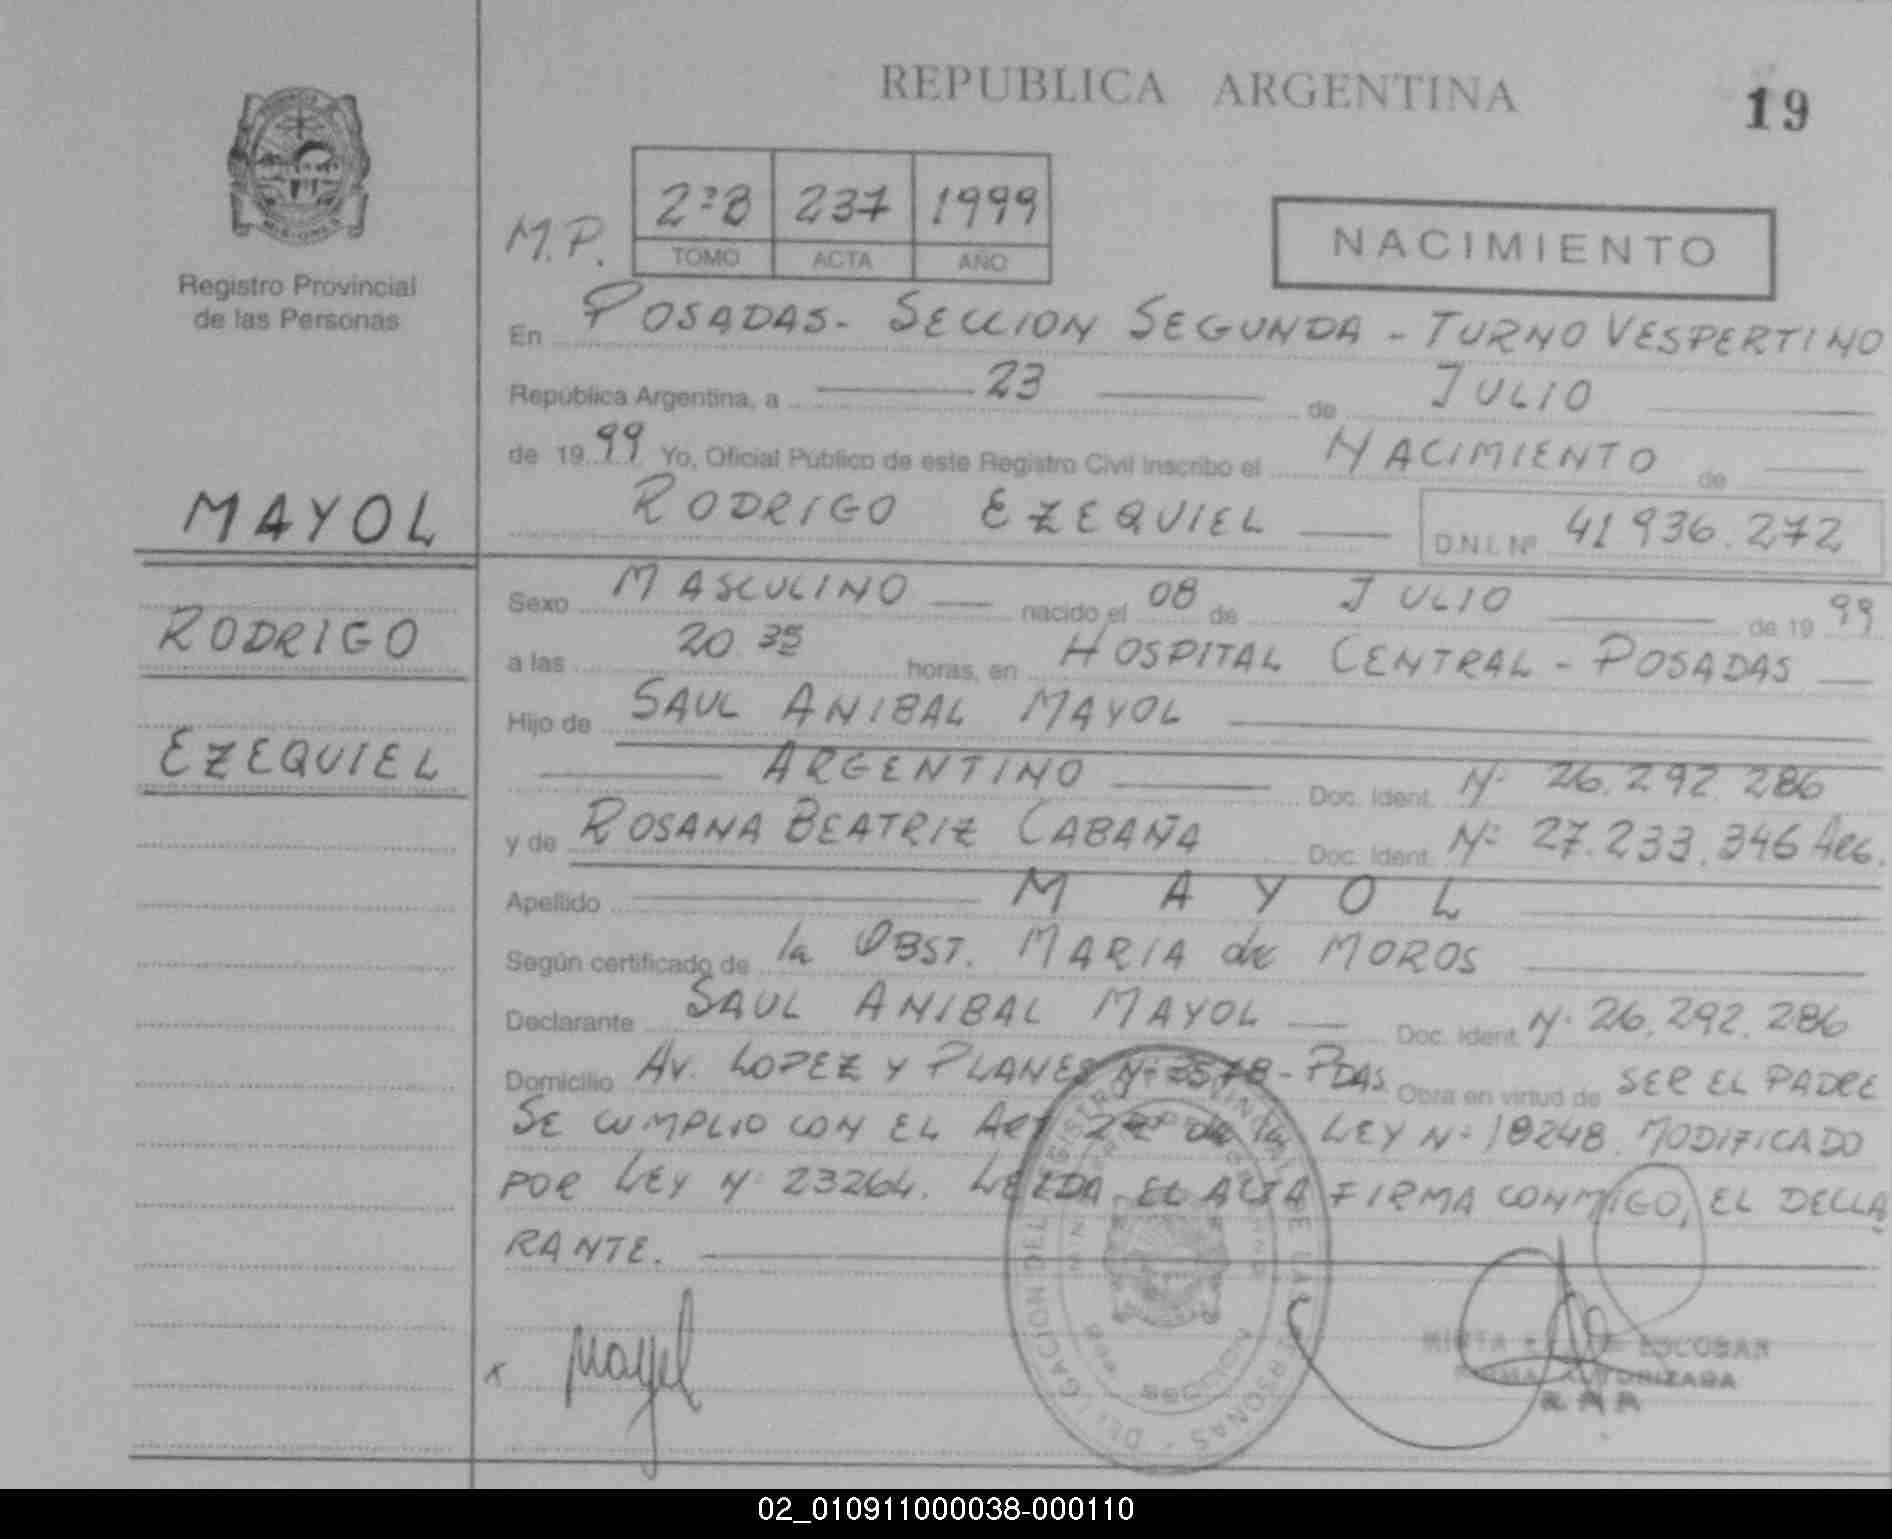 REPUBLICA ARGENTINA
19
MISIONES
Registro Provincial
de las Personas
M.P.
2ºB 237 1999
TOMO ACTA AÑO
NACIMIENTO
En POSADAS - SECCION SEGUNDA - TURNO VESPERTINO
República Argentina, a 23 de JULIO
de 1999 Yo, Oficial Público de este Registro Civil inscribo el NACIMIENTO de
RODRIGO EZEQUIEL D.N.I. Nº 41936.272
MAYOL
RODRIGO
EZEQUIEL
Sexo MASCULINO nacido el 08 de JULIO de 1999
a las 20.35 horas, en HOSPITAL CENTRAL - POSADAS
Hijo de SAUL ANIBAL MAYOL
ARGENTINO Doc. Ident. Nº 26.292.286
y de ROSANA BEATRIZ CABAÑA Doc. Ident. Nº 27.233.346 ARG.
Apellido MAYOL
Según certificado de la OBST. MARIA de MOROS
Declarante SAUL ANIBAL MAYOL Doc. Ident. Nº 26.292.286
Domicilio AV. LOPEZ Y PLANES Nº - PDAS Obra en virtud de SER EL PADRE
SE CUMPLIO CON EL ART de la LEY Nº 18248. MODIFICADO
POR LEY Nº 23264. LEIDA EL ACTA FIRMA CONMIGO, EL DECLA
RANTE.
x Mayol
ESCOBAR
FIRMA AUTORIZADA
REGISTRO PROVINCIAL DE LAS PERSONAS - DELEGACION DEL
02_010911000038-000110